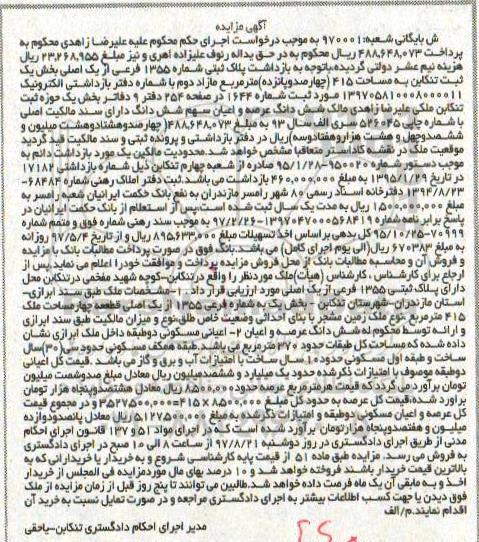 آگهی مزایده
ش بایگانی شعبه: ۹۷۰۰۰۱ به موجب درخواست اجرای حکم محکوم علیه علیرضا زاهدی محکوم به
پرداخت ۴۸۸,۶۴۸,۰۷۳ ریال محکوم به در حق یداله رئوف علیزاده اهری و نیز مبلغ ۲۳,۲۶۸,۹۵۵ ریال
هزینه نیم عشر دولتی گردیده باتوجه به بازداشت پلاک ثبتی شماره ۱۳۵۵ فرعی از یک اصلی بخش یک
ثبت تنکابن به مساحت ۴۱۵ (چهارصدوپانزده) مترمربع مازاد دوم با شماره دفتر بازداشتی الکترونیک
۱۳۹۷۰۵۸۱۰۰۰۸۰۰۰۰۱۱ مورد ثبت شماره ۱۶۴۴ در صفحه ۲۵۴ دفتر ۹ دفاتر بخش یک حوزه ثبت
تنکابن ملکی علیرضا زاهدی مالک شش دانگ عرصه و اعیان سهم شش دانگ دارای سند مالکیت اصلی
با شماره چاپی ۵۲۶۰۴۵ سری الف سال ۹۳ به مبلغ ۴۸۸,۶۴۸,۰۷۳ (چهارصدوهشتادوهشت میلیون و
ششصدوچهل و هشت هزاروهفتادوسه) ریال در دفتر بازداشتی و پرونده ثبتی و سند مالکیت قید گردید
موقعیت ملک در نقشه کاداستر متعاقبا مشخص خواهد شد. محدودیت مالکین یک مورد بازداشت دائم به
موجب دستور شماره ۹۵۰۰۲۰-۹۵/۱/۲۸ صادره از شعبه چهارم تنکابن ذیل شماره بازداشتی ۱۷۱۸۲
در تاریخ ۱۳۹۵/۱/۲۹ به مبلغ ۴۶۰,۰۰۰,۰۰۰ بازداشت می باشد. ثبت دفتر املاک رهنی شماره ۶۸۴۸۴-
۱۳۹۴/۸/۲۳ دفترخانه اسناد رسمی ۸۰ شهر رامسر مازندران به نفع بانک حکمت ایرانیان شعبه رامسر به
مبلغ ۱,۵۰۰,۰۰۰,۰۰۰ ریال به مدت یک سال ثبت شده است. پس از استعلام از بانک حکمت ایرانیان در
پاسخ برابر نامه شماره ۱۳۹۷۰۴۷۰۰۰۵۶۸۴۱۹-۹۷/۲/۲۶ به موجب سند رهنی شماره فوق و متمم شماره
۷۰۹۹۹-۹۵/۱۰/۲۵ کل بدهی براساس اخذ تسهیلات مبلغ ۸۹۵,۶۳۳,۰۰۰ ریال و از تاریخ ۹۷/۵/۴ روزانه
به مبلغ ۶۷۰۳۸۳ ریال (الی یوم اجرای کامل) می باشد. بانک فوق در صورت پرداخت مطالبات بانک با مزایده
و فروش آن و محاسبه مطالبات بانک از محل فروش مزایده پرداخت و موافقت خود را اعلام می نماید. پس از
ارجاع برای کارشناس، کارشناس (هیأت) ملک موردنظر را واقع در تنکابن-کوچه شهید مفخمی در تنکابن محل
دارای پلاک ثبتی ۱۳۵۵ فرعی از یک اصلی مورد ارزیابی قرار داد. ۱-مشخصات ملک طبق سند ابرازی-
استان مازندران-شهرستان تنکابن - بخش یک به شماره فرعی ۱۳۵۵ از یک اصلی قطعه چهار مساحت ملک
۴۱۵ مترمربع نوع ملک زمین مشجر با بنای احداثی وضعیت خاص طلق، نوع و میزان مالکیت طبق سند ابرازی
و ارائه توسط محکوم له شش دانگ عرصه و اعیان ۲- اعیانی مسکونی دوطبقه داخل ملک ابرازی نشان
داده شده که مساحت کل طبقات حدود ۲۷۰ مترمربع می باشد. طبقه همکف مسکونی حدود سی (۳۰) سال
ساخت و طبقه اول مسکونی حدود ۱۰ سال ساخت با امتیازات آب و برق و گاز می باشد. قیمت کل اعیانی
دوطبقه موصوف با امتیازات ذکرشده حدود یک میلیارد و ششصدمیلیون ریال معادل مبلغ صدوشصت میلیون
تومان برآورد می گردد که قیمت هر مترمربع عرصه حدود ۸,۵۰۰,۰۰۰ ریال معادل هشتصدوپنجاه هزار تومان
برآورد شده، قیمت کل عرصه به حدود کل مبلغ ۸۵۰۰۰۰۰×۴۱۵=۳۵۲۷۵۰۰۰۰۰ و در مجموع قیمت
کل عرصه و اعیان مسکونی دوطبقه و امتیازات ذکرشده به مبلغ ۵,۱۲۷,۵۰۰,۰۰۰ ریال معادل پانصدودوازده
میلیون و هفتصدوپنجاه هزارتومان برآورد شده است که در اجرای مواد ۵۱ و ۱۳۷ قانون اجرای احکام
مدنی از طریق اجرای دادگستری در روز دوشنبه ۹۷/۸/۲۱ از ساعت ۸ الی ۱۰ صبح در اجرای دادگستری
به فروش می رسد. مزایده طبق ماده ۵۱ از قیمت پایه کارشناسی شروع و به خریدار یا خریدارانی که به
بالاترین قیمت خریدار باشند فروخته خواهد شد و ۱۰ درصد بهای مال موردمزایده فی المجلس از خریدار
اخذ و به مابقی آن یک ماه فرصت داده خواهد شد. طالبین می توانند تا پنج روز قبل از زمان مزایده از ملک
فوق دیدن یا جهت کسب اطلاعات بیشتر به اجرای دادگستری مراجعه و در صورت تمایل نسبت به خرید آن
اقدام نمایند. م/الف
مدیر اجرای احکام دادگستری تنکابن-یاحقی